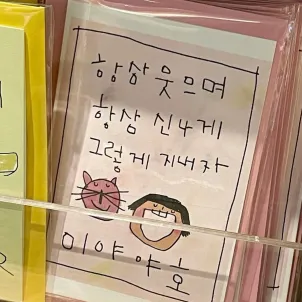 항상 웃으며
항상 신나게
그렇게 지내자
미야야호